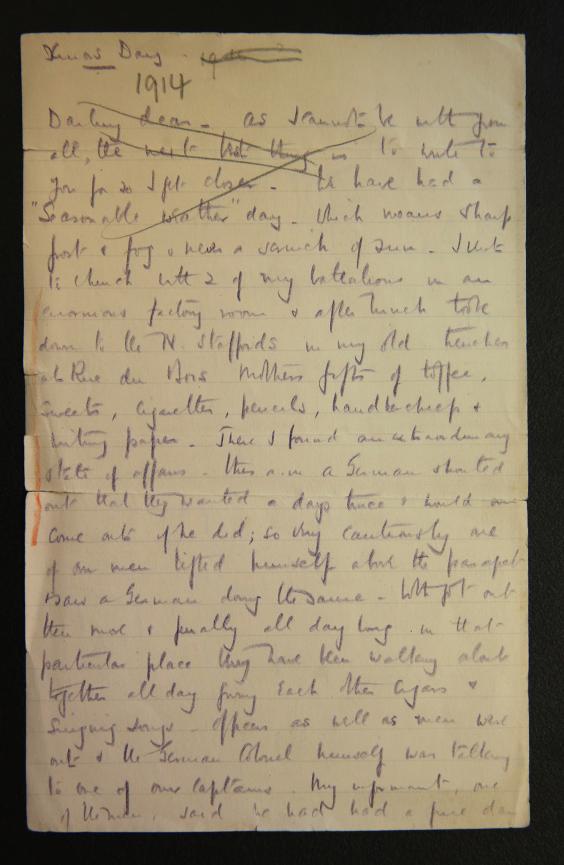 Xmas Day -
1914
Darling dear - as I cannot be with you
all, the next best thing is to write to
you for so I get closer - We have had a
"Seasonable weather" day - which means sharp
frost & fog & never a scrinch of sun - I went
to church with 2 of my battalions in an
enormous factory room & after lunch took
down to the N. Staffords in my old trenches
at Rue du Bois Mother's gifts of toffee,
sweets, cigarettes, pencils, handkerchiefs &
writing paper - There I found an extraordinary
state of affairs - this a.m. a German shouted
out that they wanted a days truce & would one
come out if he did; so very cautiously one
of our men lifted himself above the parapet
& saw a German doing the same - Both got out
then more & finally all day long in that
particular place they have been walking about
together all day giving each other cigars &
singing songs - Officers as well as men were
out & the German Colonel himself was talking
to one of our Captains. My informant, one
of the men, said he had had a fine day